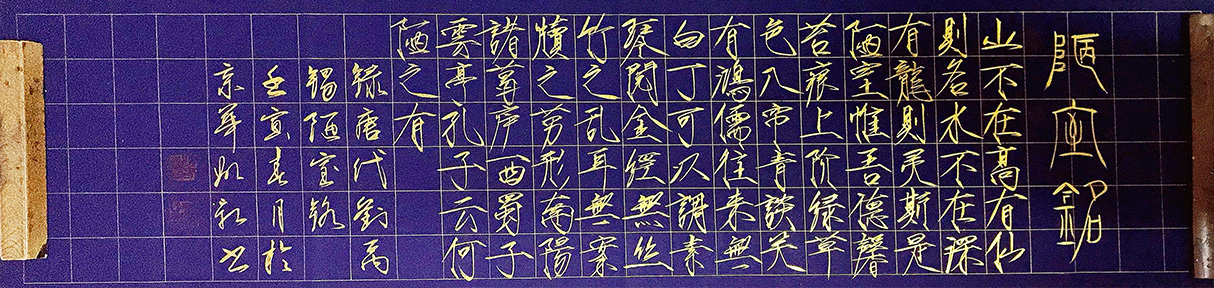 陋室銘
山不在高有仙
則名水不在深
有龍則灵斯是
陋室惟吾德馨
苔痕上阶綠草
色入帘青談笑
有鴻儒往来無
白丁可以調素
琴閱金經無丝
竹之乱耳無案
牘之劳形南陽
諸葛庐西蜀子
雲亭孔子云何
陋之有
録唐代劉禹
锡陋室铭
壬寅春月於
京華书